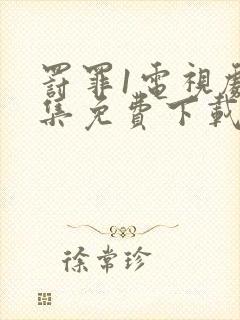 罰罪1電視劇
集免費下載
徐常珍